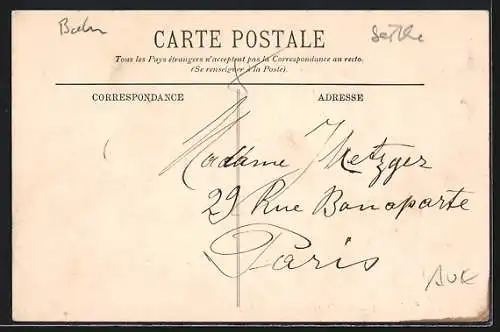 CARTE POSTALE
Tous les Pays étrangers n'acceptent pas la Correspondance au recto.
(Se renseigner à la Poste).
CORRESPONDANCE
ADRESSE
Madame Metzger
29 Rue Bonaparte
Paris